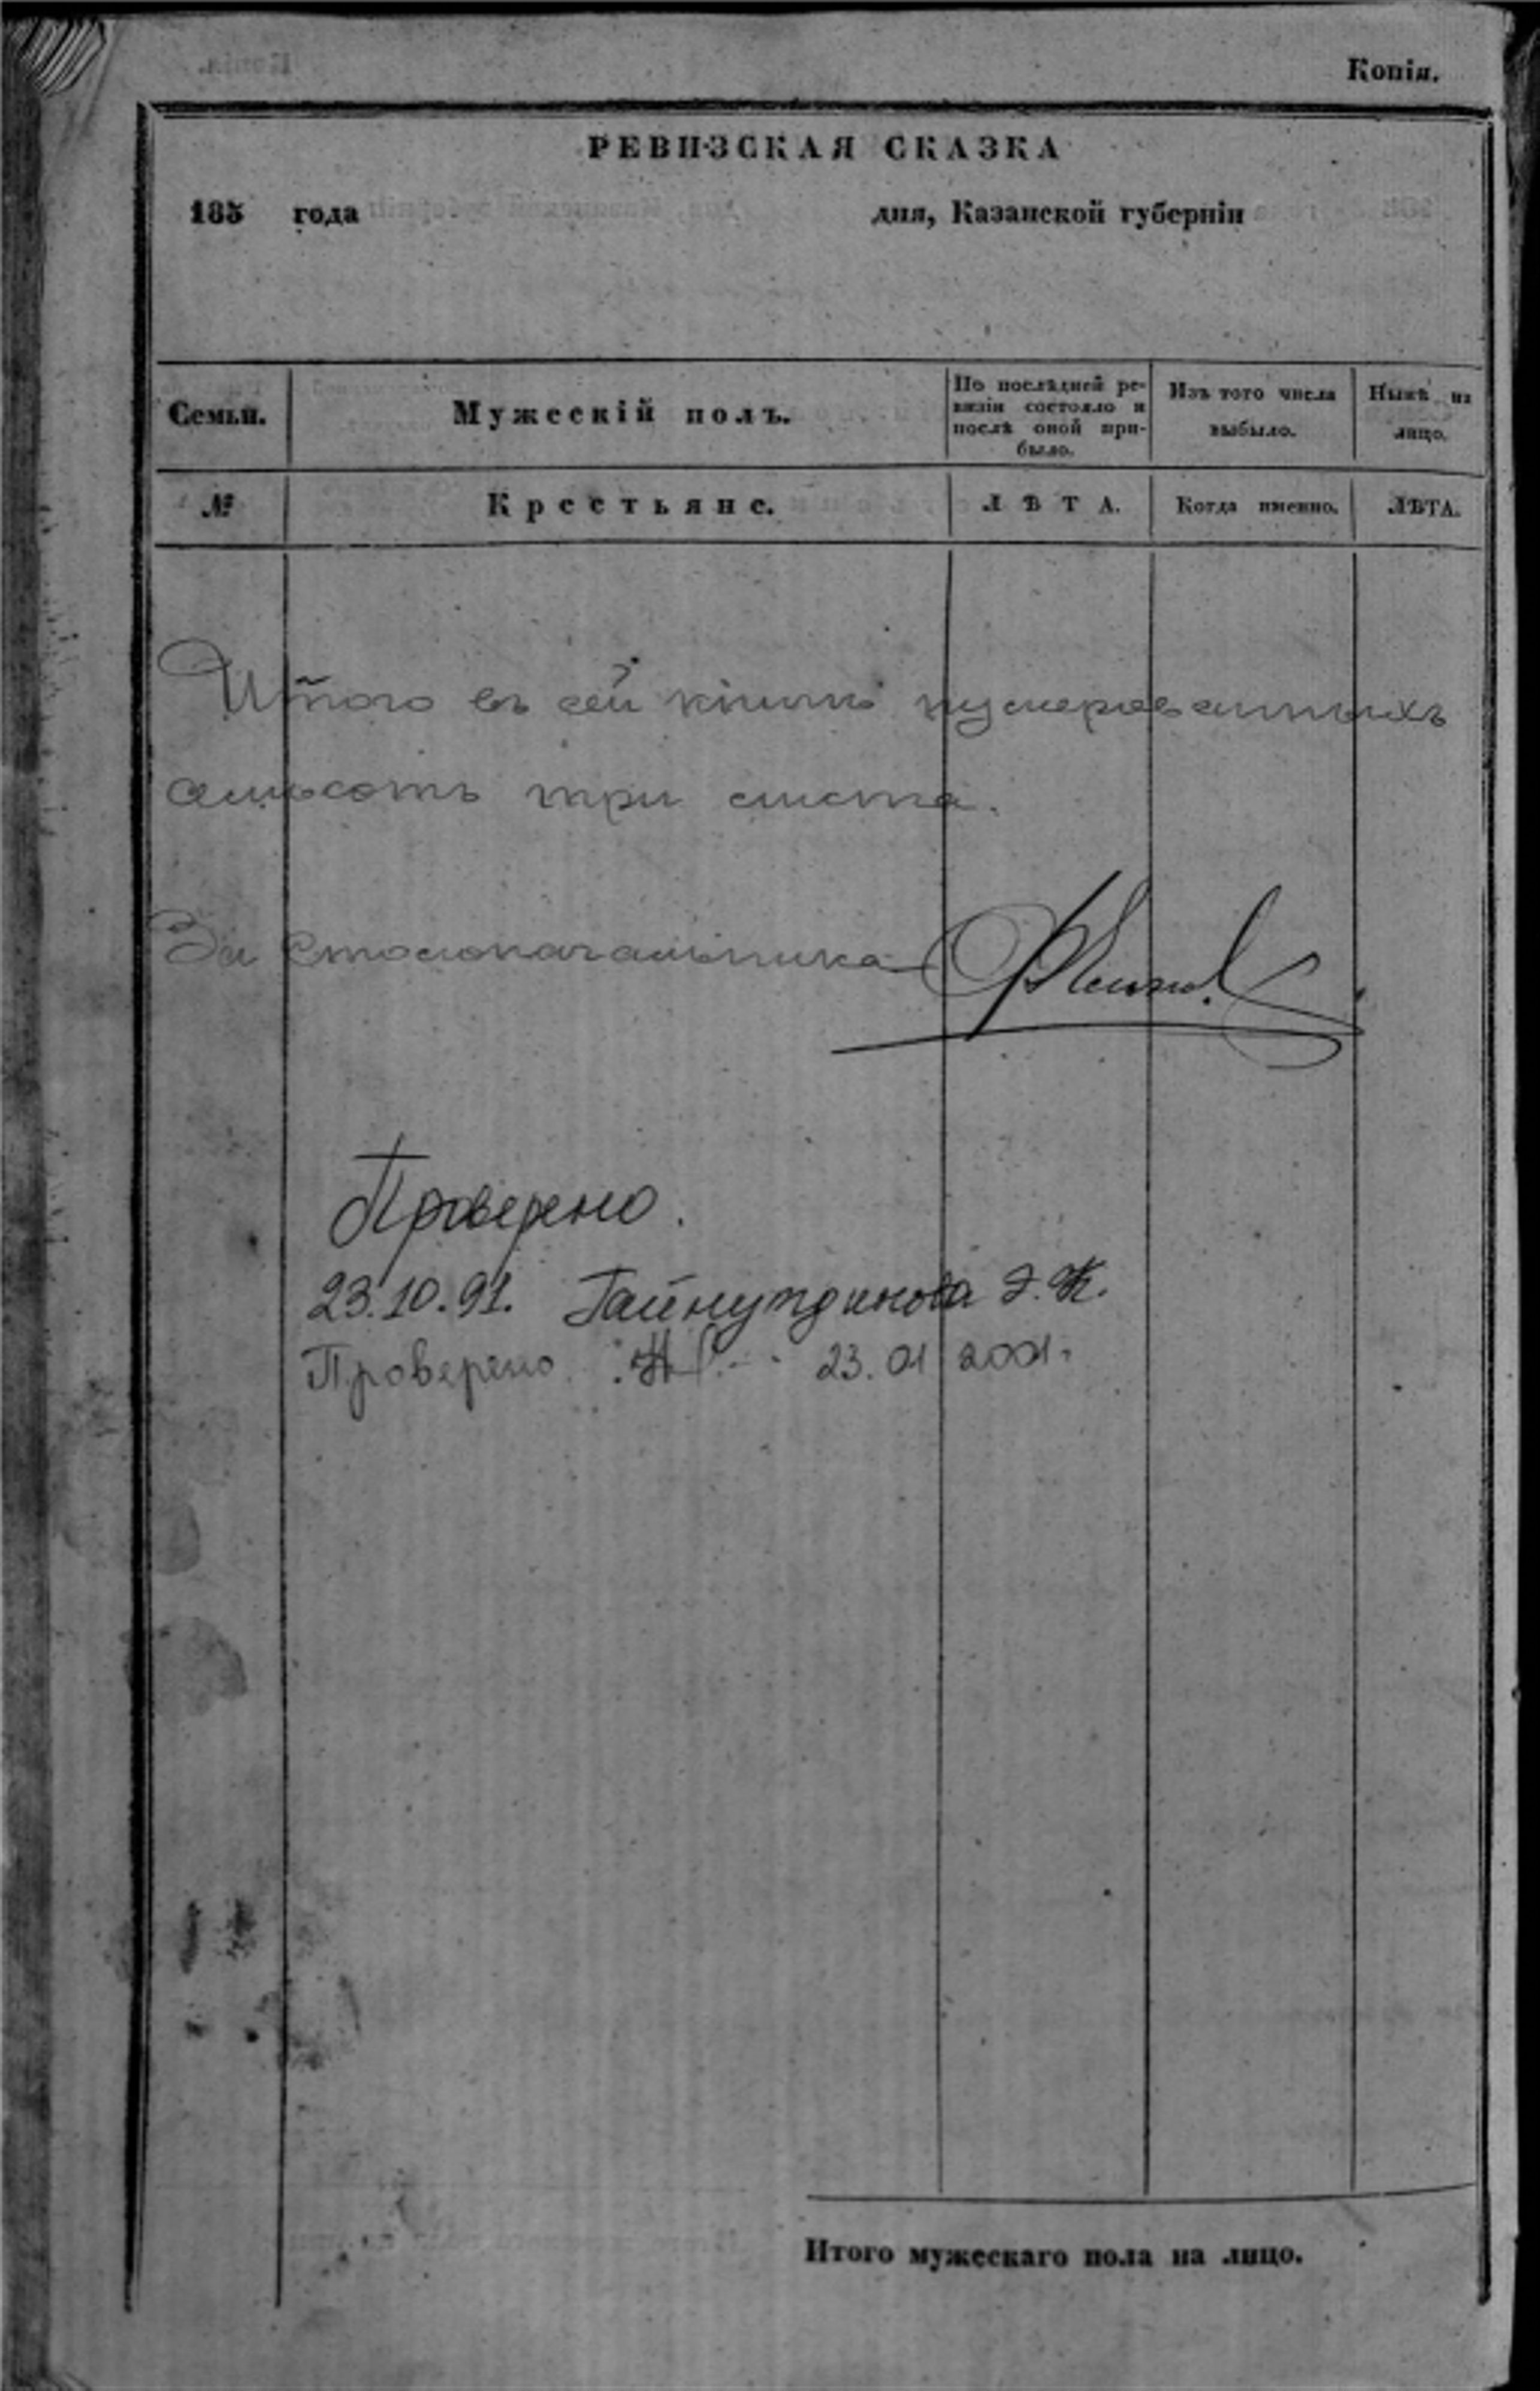 Копія.
РЕВИЗСКАЯ СКАЗКА
185 года дня, Казанской губерніи
Семьи.
Мужескій полъ.
По послѣдней ре-
визіи состояло и
послѣ оной при-
было.
Изъ того числа
выбыло.
Нынѣ на
лицо.
№
Крестьяне.
ЛѢТА.
Когда именно.
ЛѢТА.
Итого въ сей книгѣ нумерованныхъ
семьсотъ три листа.
За Столоначальника
Проверено.
23.10.91. Гайнутдинова Э.К.
Проверено 23.01 2001.
Итого мужескаго пола на лицо.